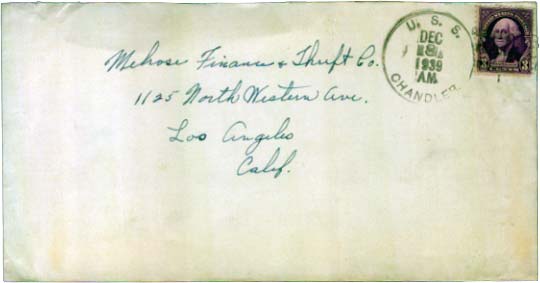 U. S. S.
DEC
8
1939
AM.
CHANDLER
3 CENTS 3
Melrose Finance & Thrift Co.
1125 North Western Ave.
Los Angeles
Calif.